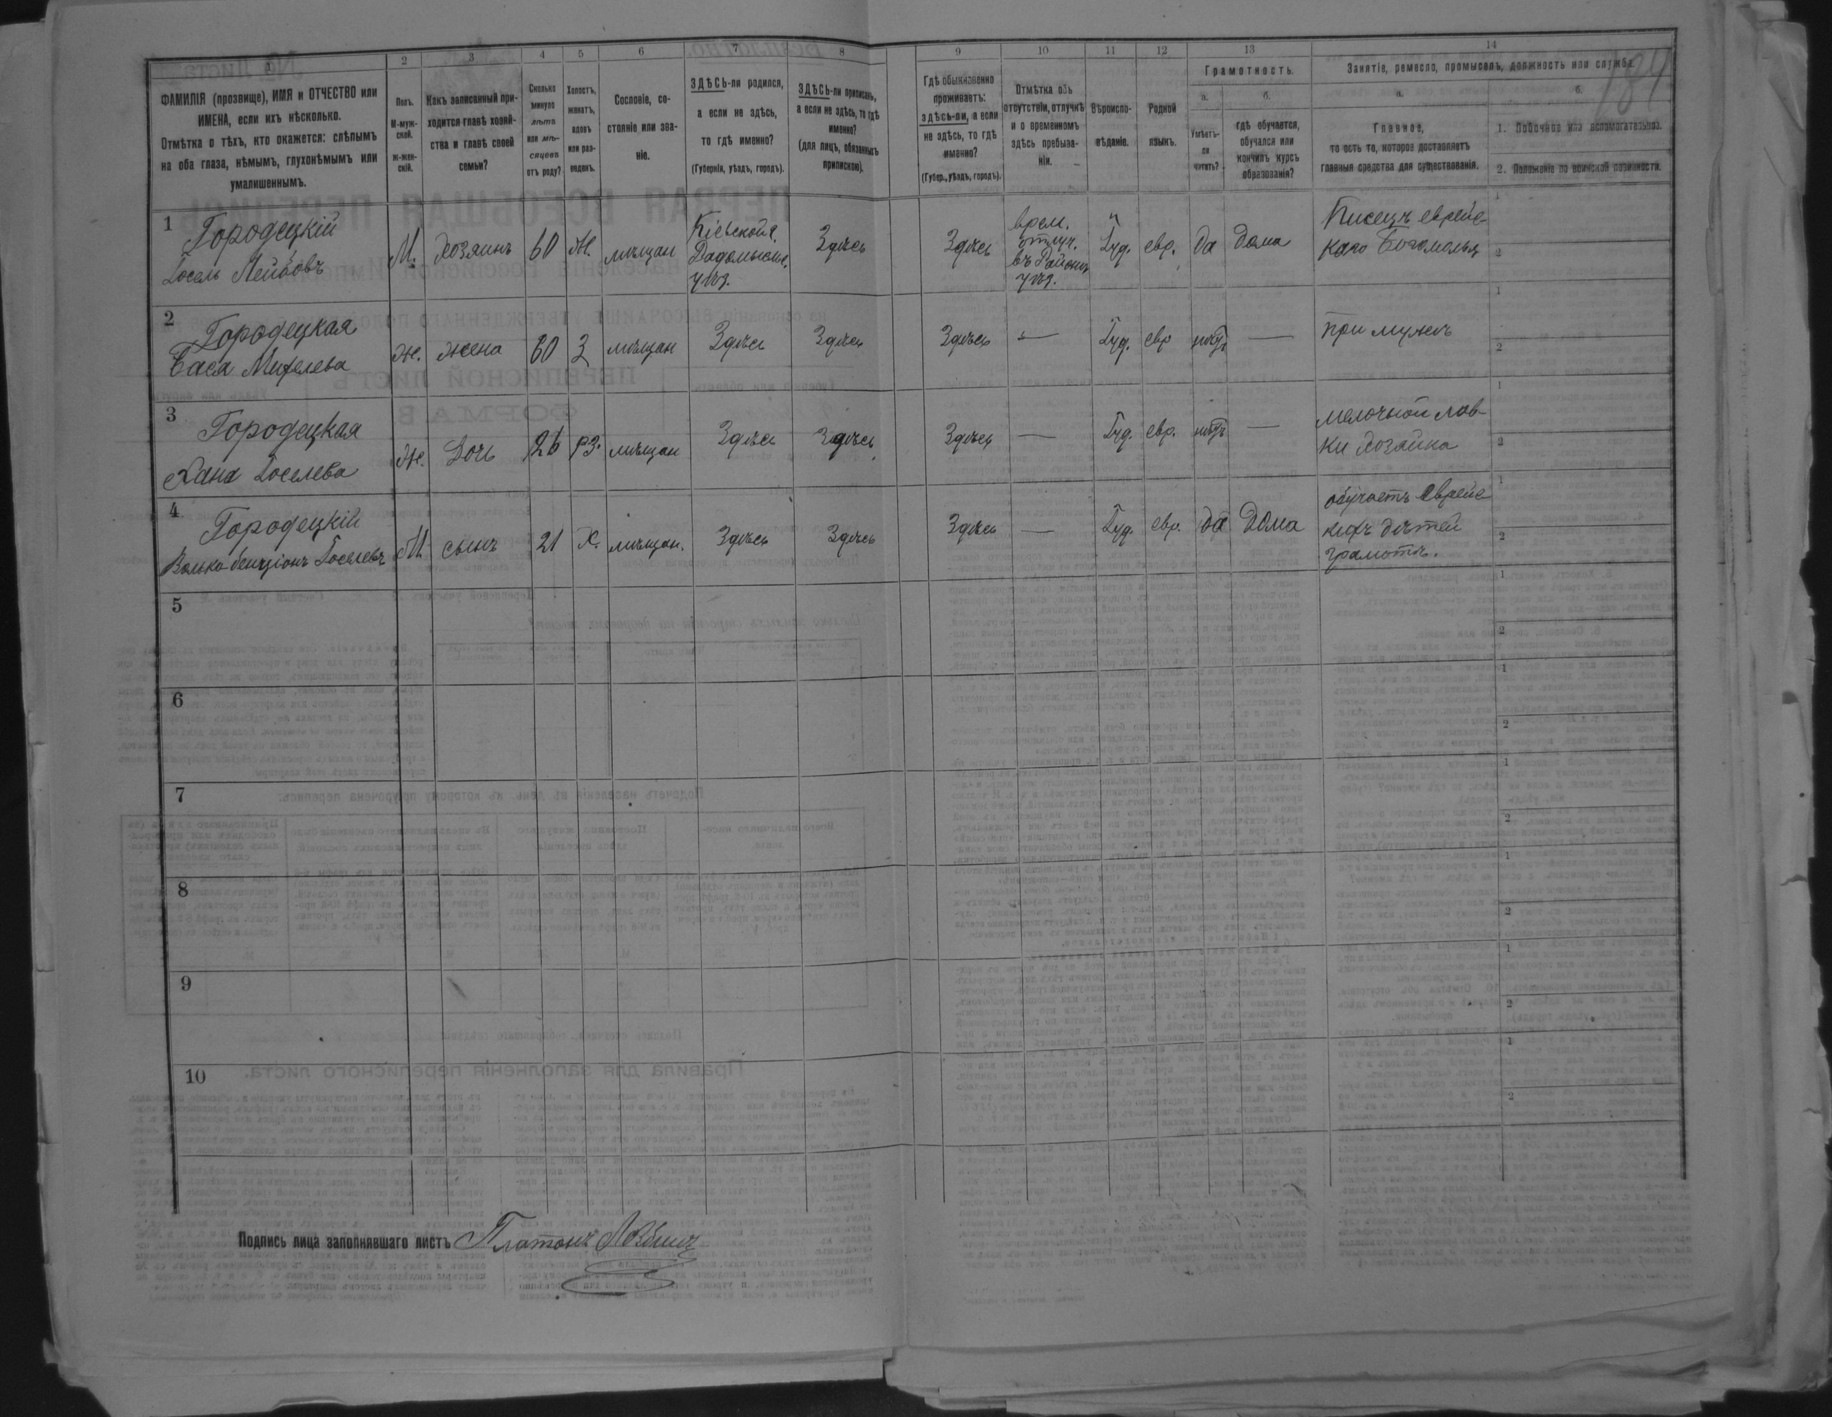 1 2 3 4 5 6 7 8 9 10 11 12 13 14
184
ФАМИЛІЯ (прозвище), ИМЯ и ОТЧЕСТВО или
ИМЕНА, если ихъ нѣсколько.
Отмѣтка о тѣхъ, кто окажется: слѣпымъ
на оба глаза, нѣмымъ, глухонѣмымъ или
умалишеннымъ.
Полъ.
М-муж-
ской.
Ж-жен-
скій.
Какъ записанный при-
ходится главѣ хозяй-
ства и главѣ своей
семьи?
Сколько
минуло
лѣтъ
или мѣ-
сяцевъ
отъ роду?
Холостъ,
женатъ,
вдовъ
или раз-
веденъ.
Сословіе, со-
стояніе или зва-
ніе.
ЗДѢСЬ-ли родился,
а если не здѣсь,
то гдѣ именно?
(Губернія, уѣздъ, городъ).
ЗДѢСЬ-ли приписанъ,
а если не здѣсь, то гдѣ
именно?
(для лицъ, обязанныхъ
припискою).
Гдѣ обыкновенно
проживаетъ:
здѣсь-ли, а если
не здѣсь, то гдѣ
именно?
(Губер., уѣздъ, городъ).
Отмѣтка объ
отсутствіи, отлучкѣ
и о временномъ
здѣсь пребыва-
ніи.
Вѣроиспо-
вѣданіе.
Родной
языкъ.
Грамотность.
а.
Умѣетъ-
ли
читать?
б.
гдѣ обучается,
обучался или
кончилъ курсъ
образованія?
Занятіе, ремесло, промыселъ, должность или служба.
а.
Главное,
то есть то, которое доставляетъ
главныя средства для существованія.
б.
1. Побочное или вспомогательное.
2. Положеніе по воинской повинности.
1
Городецкій
Іосель Лейбовъ
М.
хозяинъ
60
Ж.
мѣщан
Кіевской г.
Радомысльск.
уѣз.
Здѣсь
Здѣсь
врем.
отлуч.
уѣз.
Іуд.
евр.
да
дома
Писецъ еврейс
каго Богомолья
1
2
2
Городецкая
Бася
ж.
жена
60
З
мѣщан
Здѣсь
Здѣсь
Здѣсь
—
Іуд.
евр
нѣтъ
—
при мужѣ
1
2
3
Городецкая
Хана Іоселева
ж.
Дочь
26
рз.
мѣщан
Здѣсь
Здѣсь
Здѣсь
—
Іуд.
евр.
нѣтъ
—
мелочной лав-
ки хозяйка
1
2
4
Городецкій
Волько Бенціонъ Іоселевъ
М.
сынъ
21
Х.
мѣщан.
Здѣсь
Здѣсь
Здѣсь
—
Іуд.
евр.
да
Дома
обучаетъ еврейс
кихъ дѣтей
грамотѣ.
1
2
5
1
2
6
1
2
7
1
2
8
1
2
9
1
2
10
1
2
Подпись лица заполнявшаго листъ Платонъ